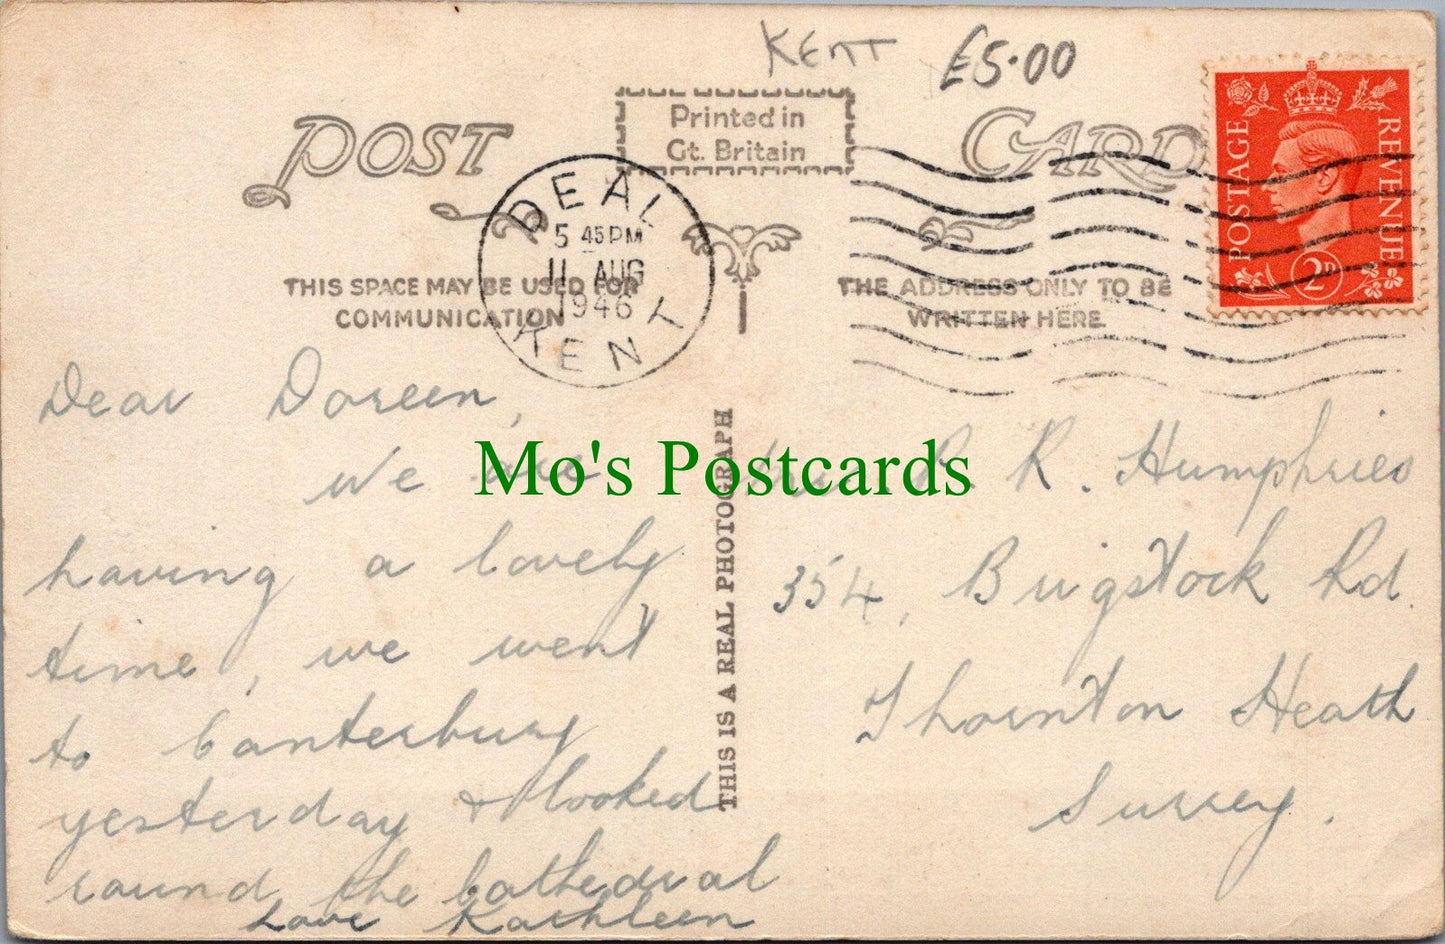 KENT £5.00
POST CARD
Printed in
Gt. Britain
POSTAGE REVENUE
2D
DEAL
5 45 PM
11 AUG
1946
KENT
THIS SPACE MAY BE USED FOR
COMMUNICATION
THE ADDRESS ONLY TO BE
WRITTEN HERE
Dear Doreen,
We are
having a lovely
time, we went
to Canterbury
yesterday & looked
round the Cathedral
Love Kathleen
THIS IS A REAL PHOTOGRAPH
Mo's Postcards
R. Humphries
354, Brigstock Rd.
Thornton Heath
Surrey.